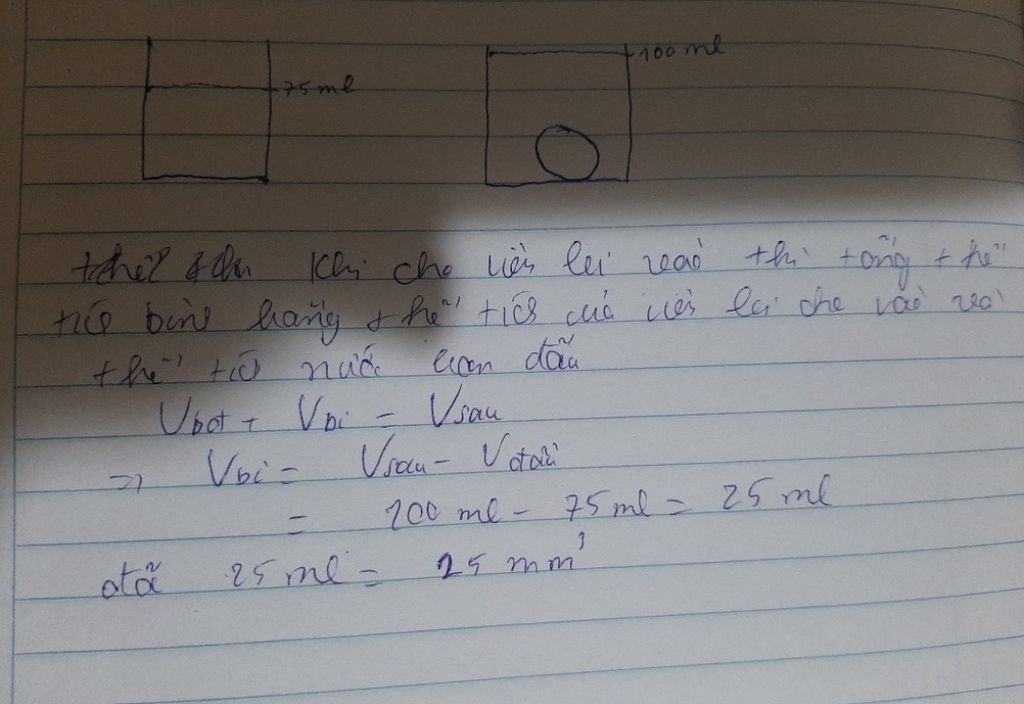 75 ml
100 ml
Khi cho viên bi vào thì tổng thể
tích bình bằng thể tích của viên bi cho vào và
thể tích nước ban đầu
V + Vbi = Vsau
=> Vbi = Vsau - Vđầu
= 100 ml - 75 ml = 25 ml
25 ml = 25 mm³